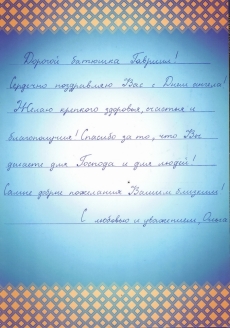 Дорогой батюшка Гавриил!
Сердечно поздравляю Вас с Днем ангела
Желаю крепкого здоровья, счастья и
благополучия! Спасибо за то, что Вы
делаете для Господа и для людей!
Самые добрые пожелания Вашим близким!
С любовью и уважением, Ольга